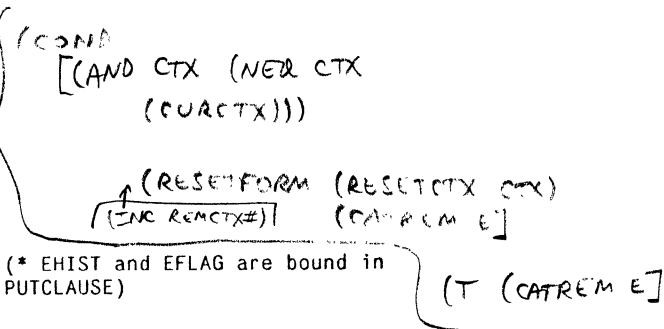 (COND
[(AND CTX (NEQ CTX
(CURCTX)))
(RESETFORM (RESETCTX CTX)
(INC REMCTX#) (CATREM E]
(* EHIST and EFLAG are bound in
PUTCLAUSE)
(T (CATREM E]